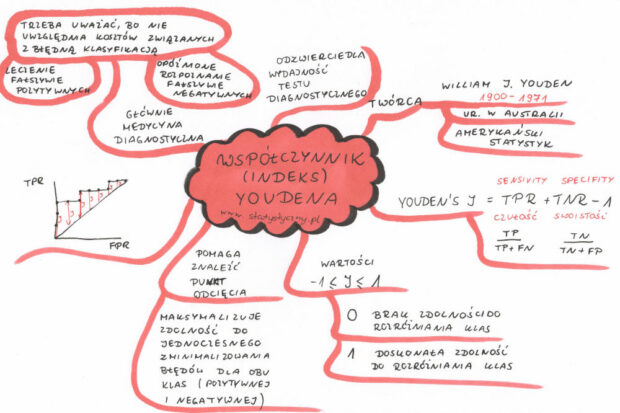 WSPÓŁCZYNNIK
(INDEKS)
YOUDENA
www.statystyczny.pl
TRZEBA UWAŻAĆ, BO NIE
UWZGLĘDNIA KOSZTÓW ZWIĄZANYCH
Z BŁĘDNĄ KLASYFIKACJĄ
LECZENIE
FAŁSZYWIE
POZYTYWNYCH
OPÓŹNIONE
ROZPOZNANIE
FAŁSZYWIE
NEGATYWNYCH
GŁÓWNIE
MEDYCYNA
DIAGNOSTYCZNA
ODZWIERCIEDLA
WYDAJNOŚĆ
TESTU
DIAGNOSTYCZNEGO
TWÓRCA
WILLIAM J. YOUDEN
1900-1971
UR. W AUSTRALII
AMERYKAŃSKI
STATYSTYK
SENSIVITY SPECIFITY
YOUDEN'S J = TPR + TNR - 1
CZUŁOŚĆ SWOISTOŚĆ
TP TN
TP+FN TN+FP
WARTOŚCI
-1 ≤ J ≤ 1
0 BRAK ZDOLNOŚCI DO
ROZRÓŻNIANIA KLAS
1 DOSKONAŁA ZDOLNOŚĆ
DO ROZRÓŻNIANIA KLAS
POMAGA
ZNALEŹĆ
PUNKT
ODCIĘCIA
MAKSYMALIZUJE
ZDOLNOŚĆ DO
JEDNOCZESNEGO
ZMINIMALIZOWANIA
BŁĘDÓW DLA OBU
KLAS (POZYTYWNEJ
I NEGATYWNEJ)
TPR
J J J J
FPR